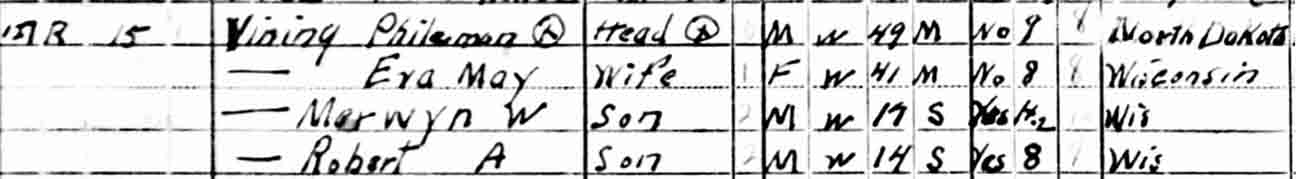 157 R 15 Vining Phileman Ⓐ Head Ⓐ M W 49 M No 9 8 North Dakota
— Eva May Wife 1 F W 41 M No 8 8 Wisconsin
— Merwyn W Son 2 M W 17 S Yes H-2 Wis
— Robert A Son 2 M W 14 S Yes 8 Wis